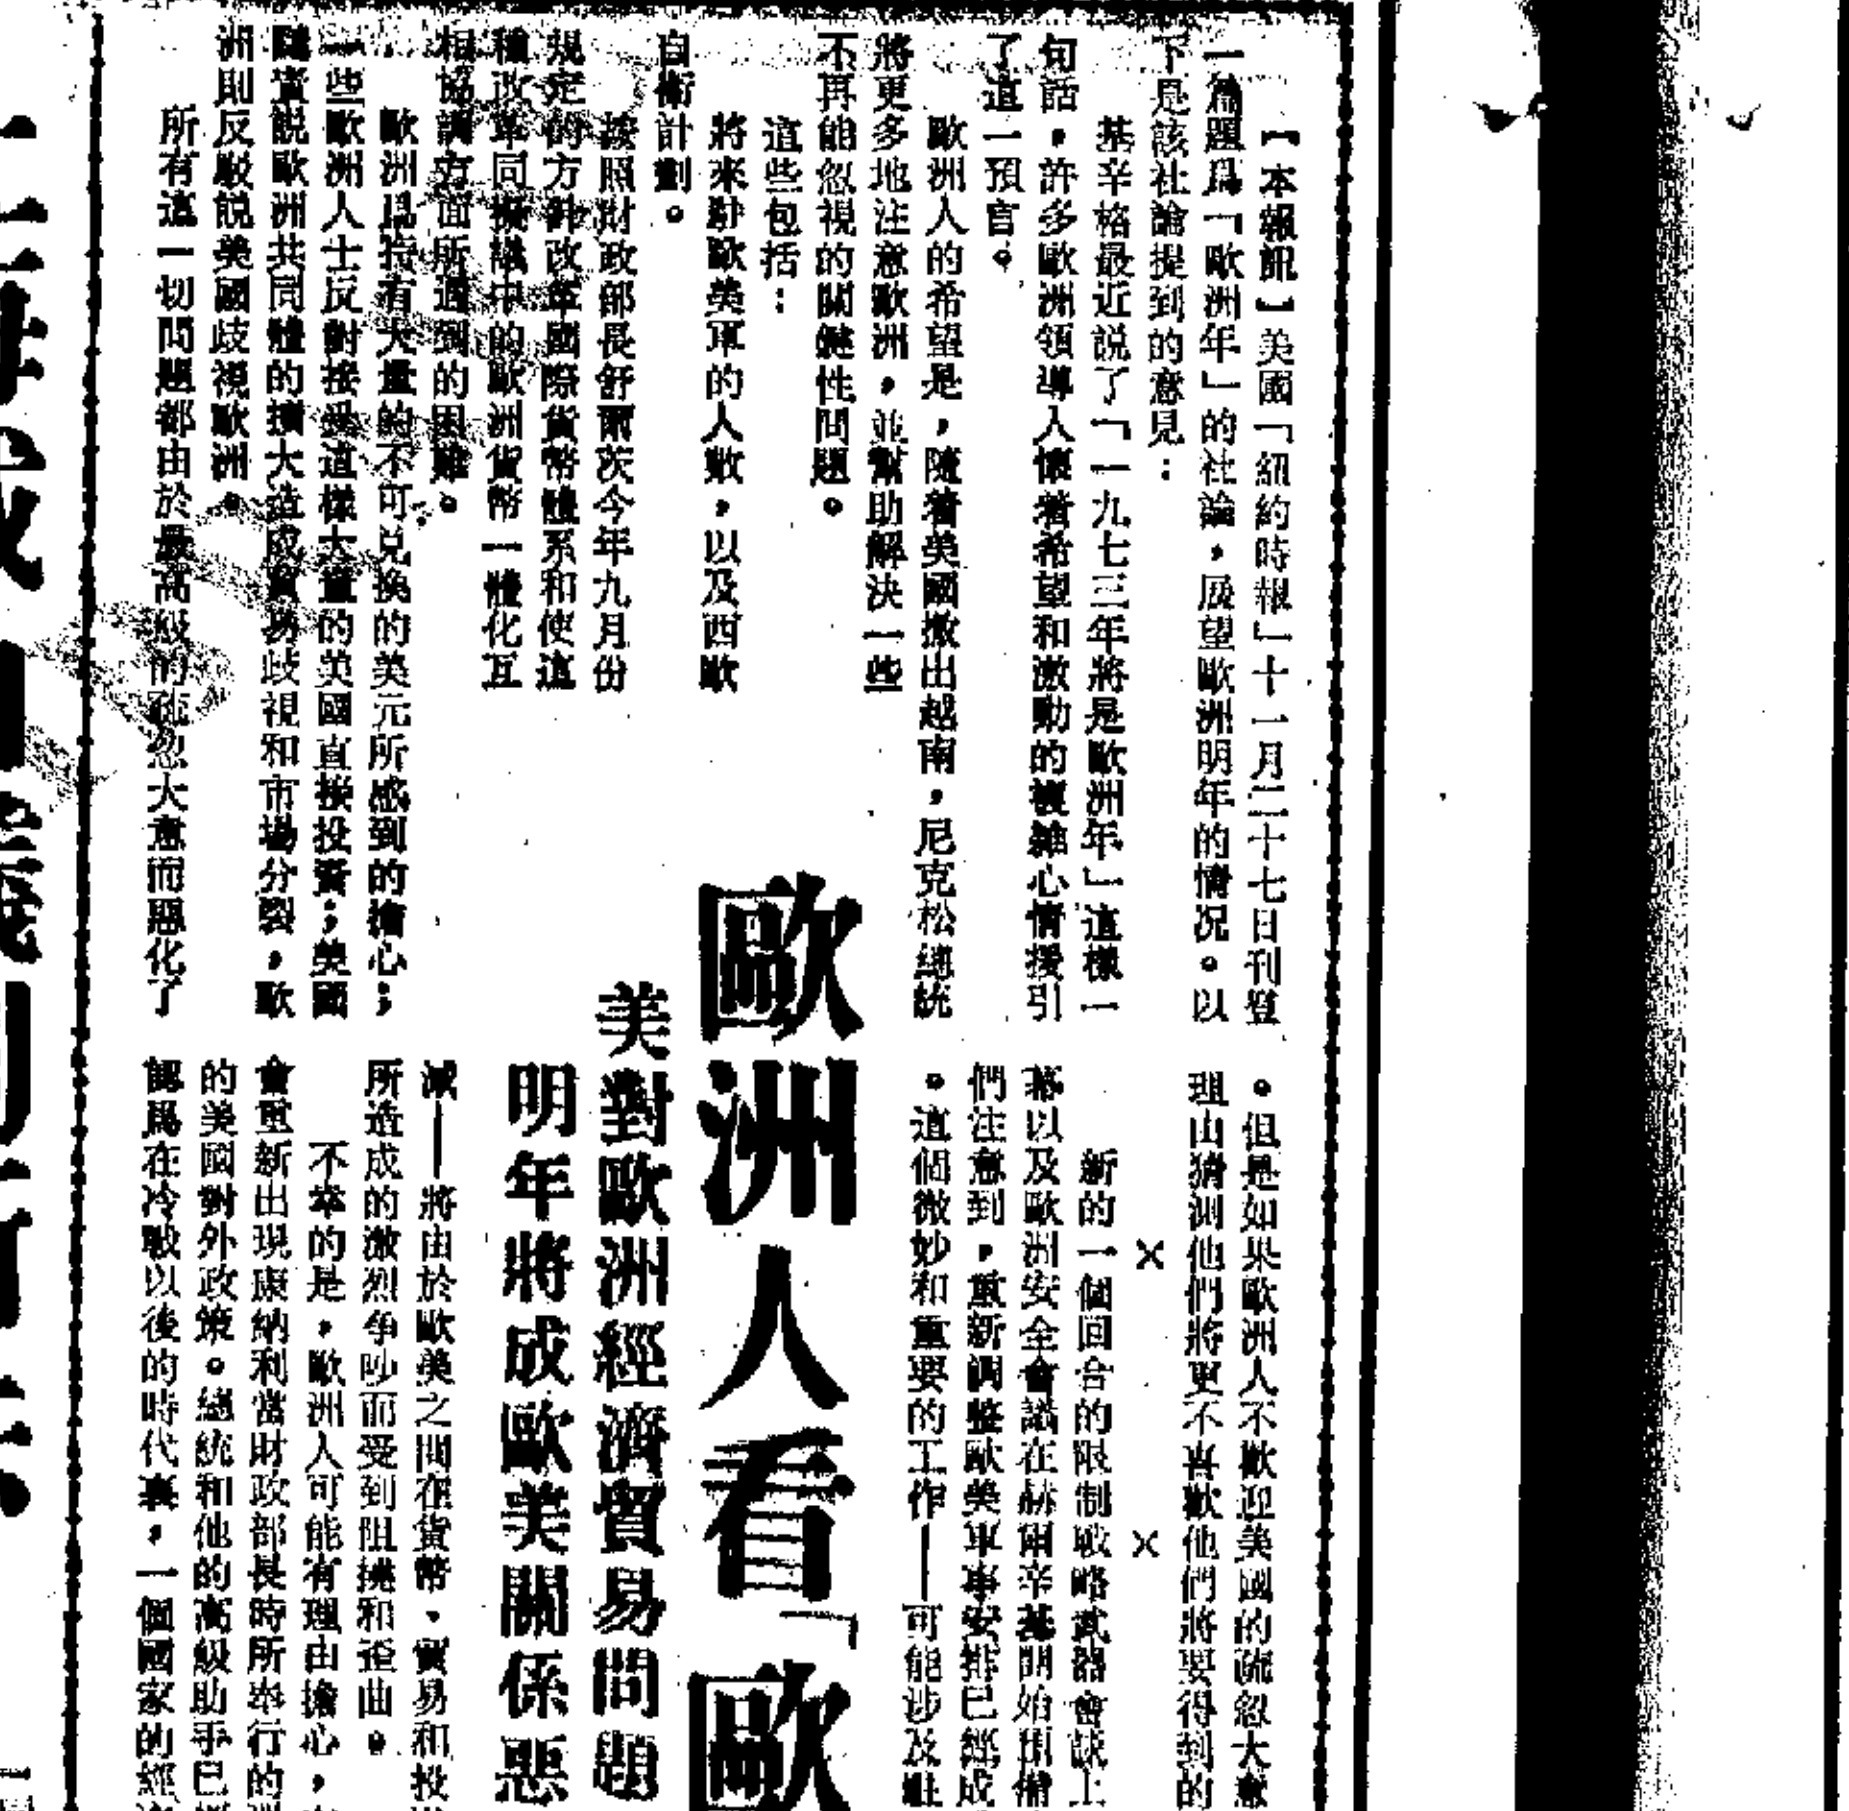 【本報訊】美國「紐約時報」十一月二十七日刊登
一篇題爲「歐洲年」的社論，展望歐洲明年的情况。以
下是該社論提到的意見：
基辛格最近説了「一九七三年將是歐洲年」這樣一
句話，許多歐洲領導人懷着希望和激動的複雜心情援引
了這一預言。
歐洲人的希望是，隨着美國撤出越南，尼克松總統
將更多地注意歐洲，並幫助解決一些
不再能忽視的關鍵性問題。
這些包括：
將來駐歐美軍的人數，以及西歐
自衛計劃。
按照財政部長舒爾茨今年九月份
規定的方針改革國際貨幣體系和使這
種改革同擬議中的歐洲貨幣一體化互
相協調方面所遇到的困難。
歐洲爲持有大量的不可兑換的美元所感到的擔心；
一些歐洲人士反對接受這樣大量的美國直接投資；美國
國責説歐洲共同體的擴大造成貿易歧視和市場分裂，歐
洲則反駁説美國歧視歐洲。
所有這一切問題都由於最高級的疏忽大意而惡化了
歐洲人看「歐
美對歐洲經濟貿易問題
明年將成歐美關係惡
。但是如果歐洲人不歡迎美國的疏忽大意
理由猜測他們將更不喜歡他們將要得到的
× ×
新的一個回合的限制戰略武器會談上
幕以及歐洲安全會議在赫爾辛基開始預備
們注意到，重新調整歐美軍事安排已經成
。這個微妙和重要的工作——可能涉及駐
減——將由於歐美之間在貨幣、貿易和投
所造成的激烈争吵而受到阻撓和歪曲。
不幸的是，歐洲人可能有理由擔心，
會重新出現康納利當財政部長時所奉行的
的美國對外政策。總統和他的高級助手已
認爲在冷戰以後的時代裏，一個國家的經